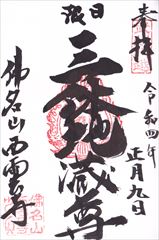 奉拝
令和四年
正月九日
日限
三体地蔵尊
佛名山西雲寺
佛名山